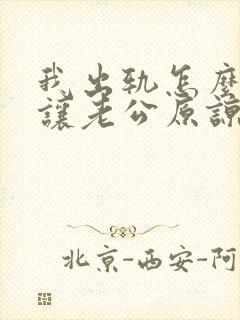 我出轨怎麼
讓老公原諒
北京-西安-阿